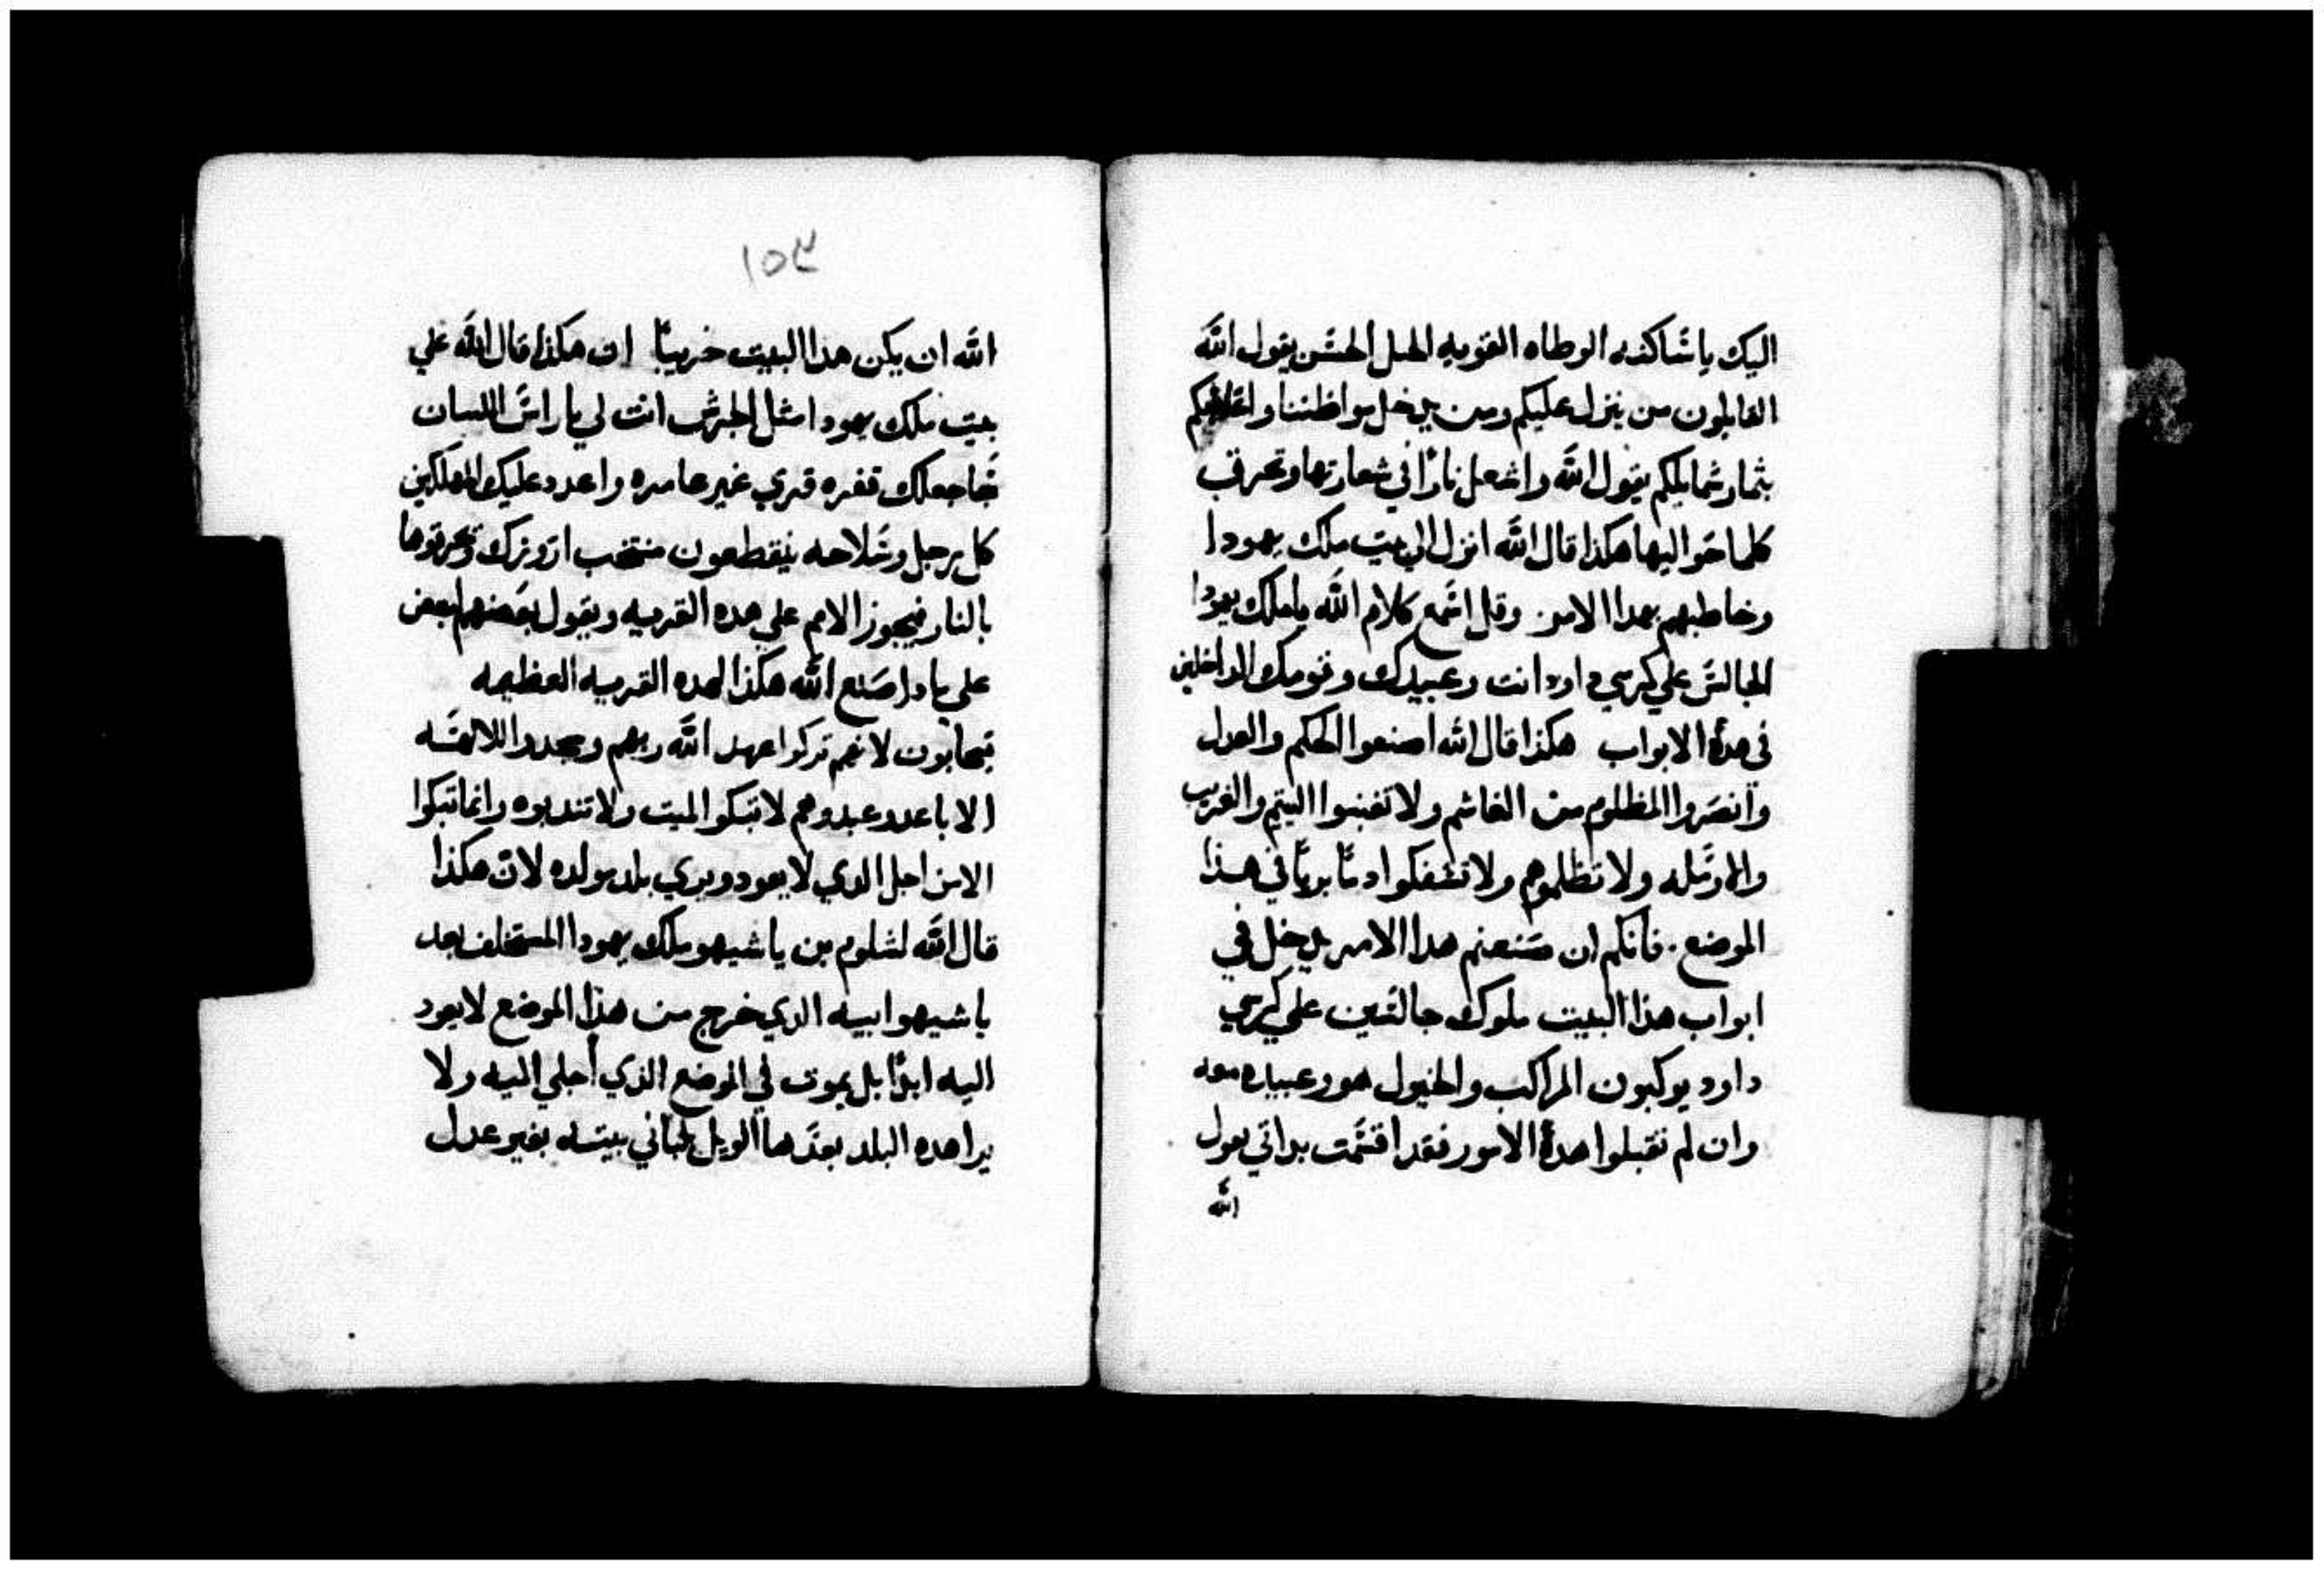 اليك ياشاكنه الوطاه القويه الهبل الحسن يقول الله
القايلون من ينزل عليكم ومن يدخل مواطننا
بثمار شمايلكم يقول الله واشعل نارًا في شعارتها وتحرقب
كلما حواليها هكذا قال الله انزل الي بيت ملك يهودا
وخاطبهم بهدا الامر وقل اشمع كلام الله ياملك يهودا
الجالش علي كرسي داود انت وعبيدك وقومك الداخلين
في هدة الابواب هكذا قال الله اصنعوا الحكم والعدل
وانصروا المظلوم من الغاشم ولا تغبنوا اليتيم والغريب
والارمله ولا تظلموهم ولا تشفكوا دمًا بريًا في هذا
الموضع فانكم ان صنعتم هدا الامر يدخل في
ابواب هذا البيت ملوك جالشين علي كرسي
داود يوكبون المراكب والخيول هو وعبيده معه
وان لم تقبلوا هدة الامور فقد اقشمت بداتي يقول
الله
١٥٣
الله ان يكن هدا البيت خريبًا ان هكذا قال الله علي
بيت ملك يهودا مثل الجرش انت لي يا راش اللبنان
شاجعلك قفره قري غير عامره واعدد عليك المهلكين
كل رجل وشلاحه يقطعون منتخب ارزك ويحرقوها
بالنار فيجوز الامم علي هده القريه ويقول بعضهم لبعض
علي ماذا صنع الله هكذا لهده القريه العظيمه
فيجابون لانهم تركوا عهد الله ربهم وسجدوا لالهة
الاباعد وعبدوهم لا تبكوا الميت ولا تندبوه وانما تبكوا
الا من اجل الدي لا يعود ويري بلد مولده لان هكذا
قال الله لشلوم بن ياشيهو ملك يهودا المستخلف بعد
ياشيهو ابيه الدي خرج من هذا الموضع لا يعود
اليه ابدًا بل يموت في الموضع الذي اجلي اليه ولا
يرا هده البلد بعدها الويل لباني بيته بغير عدل